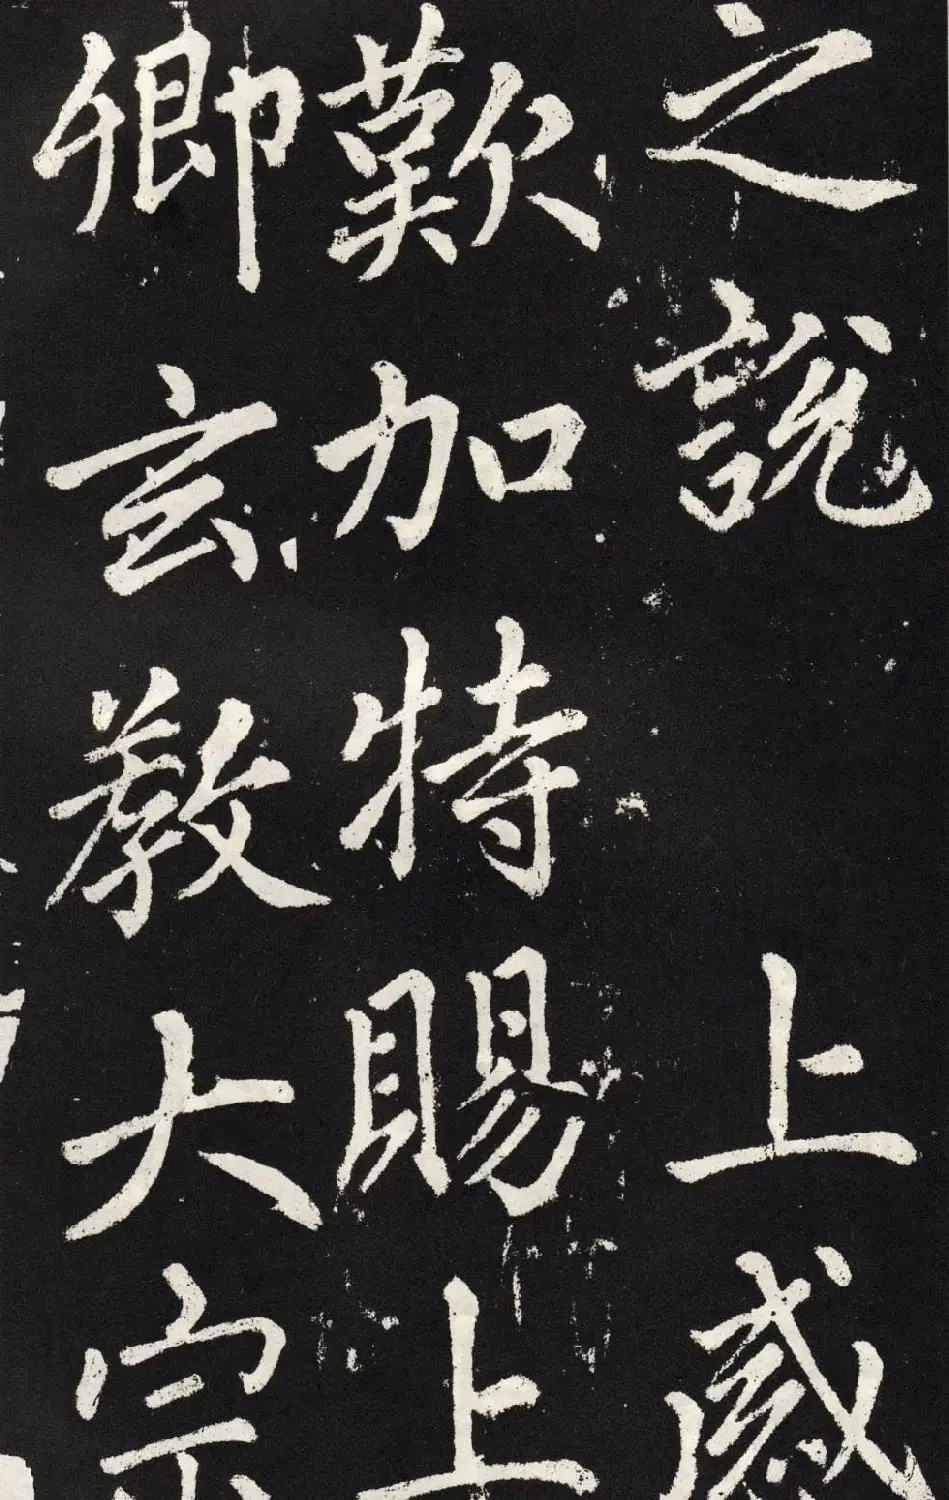 之說 上感
歎加特賜上
卿玄教大宗